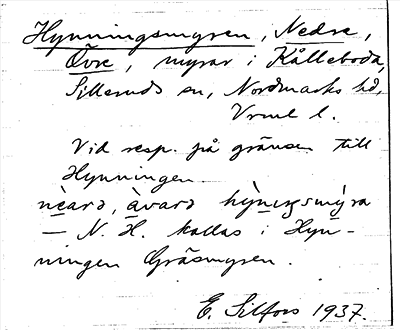 Hynningsmyren, Nedre,
Övre, myrar i Kålleboda,
Silleruds sn, Nordmarks hd,
Vrml l.
Vid resp. på gränsen till
Hynningen.
nèarə, àvarə hỳniŋsmýra
— N. H. kallas i Hyn-
ningen Gräsmyren.
E. Silfors 1937.